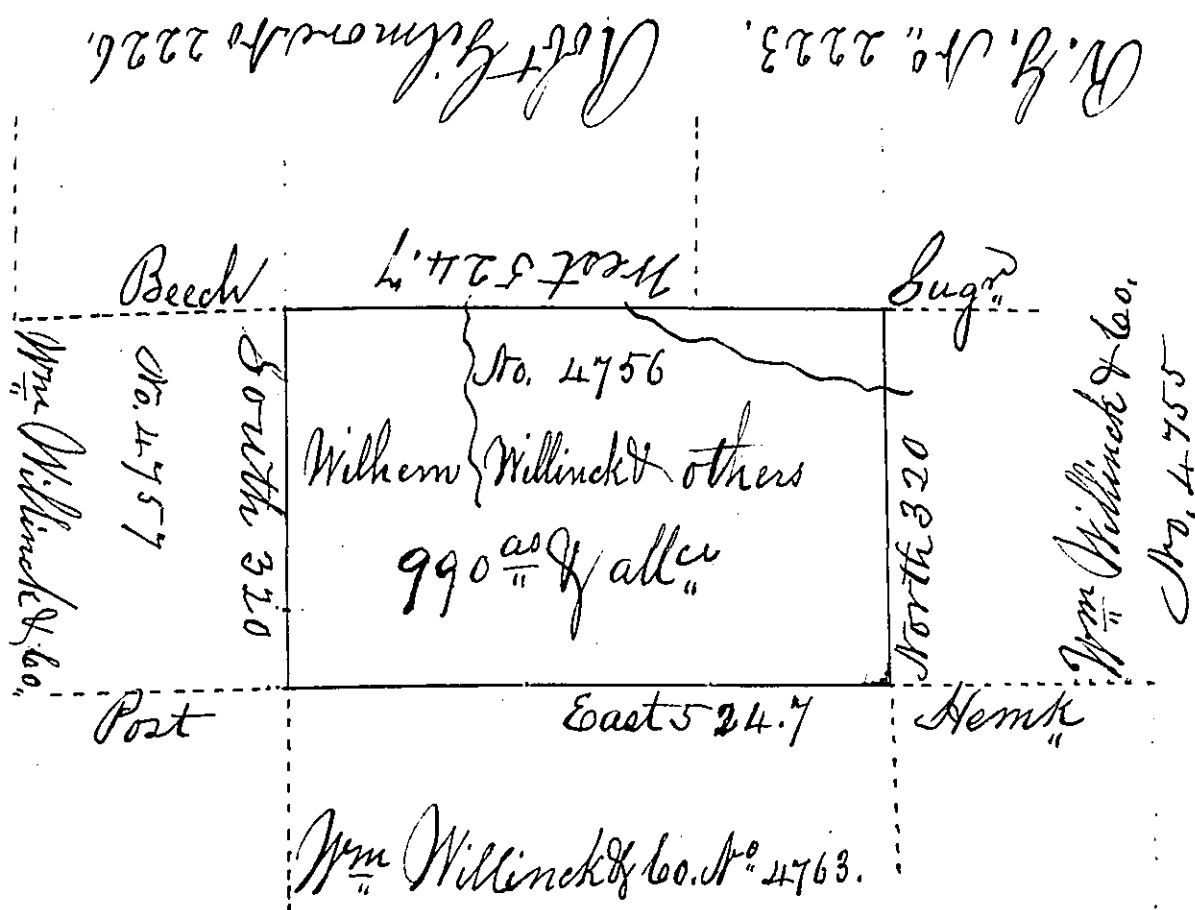 Robt Gilmore No 2226.
R. G. No. 2223.
Beech
West 524.7
Sugr
Wm Willinck & Co.
No. 4757
South 320
No. 4756
Wilhem Willinck & others
990 as & allce
North 320
Wm Willinck & Co.
No. 4755
Post
East 524.7
Hemk
Wm Willinck & Co. No 4763.